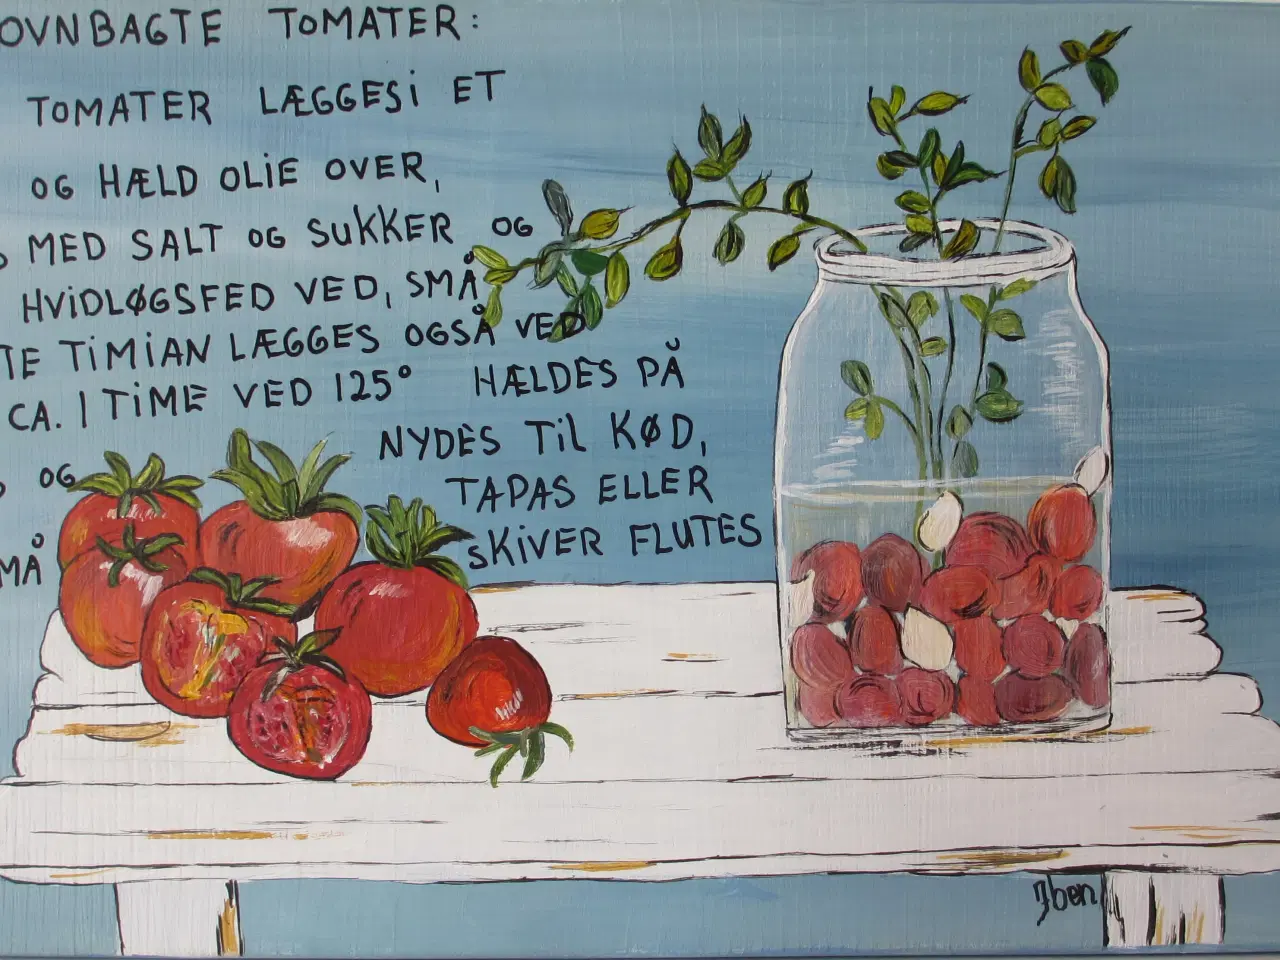 OVNBAGTE TOMATER:
TOMATER LÆGGES i ET
OG HÆLD OLIE OVER,
MED SALT OG SUKKER OG
HVIDLØGSFED VED, SMÅ
TE TIMIAN LÆGGES OGSÅ VED
CA. 1 TIME VED 125° HÆLDES PÅ
NYDES TIL KØD,
OG
TAPAS ELLER
SKIVER FLUTES
MÅ
Jben